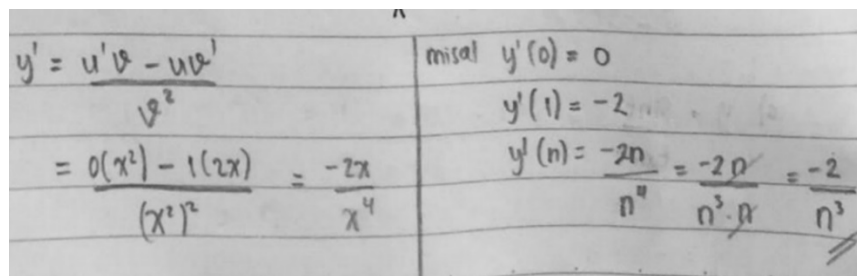 y' = u'v - uv' / v²
= 0(x²) - 1(2x) / (x²)² = -2x / x⁴
misal y'(0) = 0
y'(1) = -2
y'(n) = -2n / n⁴ = -2n / n³·n = -2 / n³